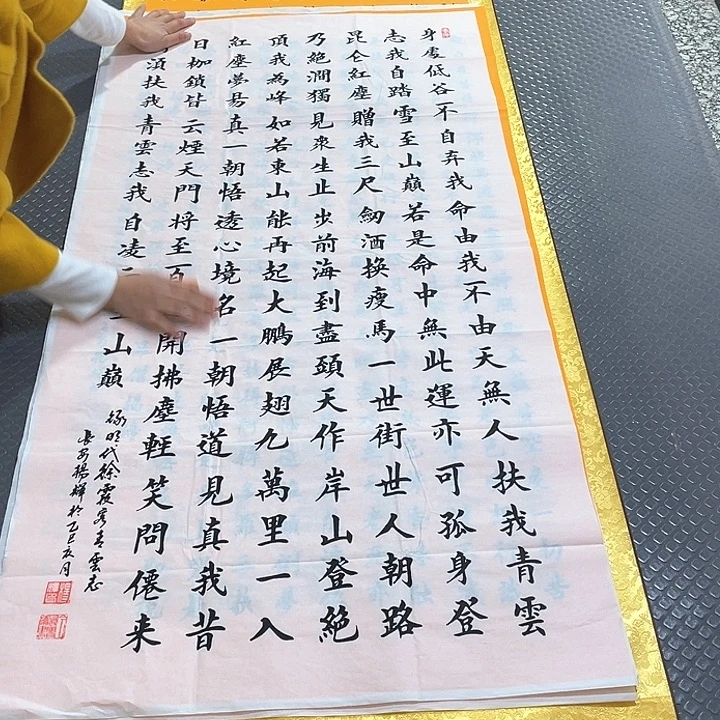 身處低谷不自弃我命由我不由天無人扶我青雲
志我自踏雪至山巔若是命中無此運亦可孤身登
昆仑紅塵贈我三尺釼洒換瘦馬一世街世人朝路
乃絕澗獨見衆生止步前海到盡頭天作岸山登絕
頂我為峰如若東山能再起大鵬展翅九萬里一入
紅塵夢易真一朝悟透心境名一朝悟道見真我昔
日枷鎖皆云煙天門將至百開拂塵輕笑問僊来
須扶我青雲志我自凌山巔
録明代徐霞客青雲志
長安楊輝於乙巳亥月